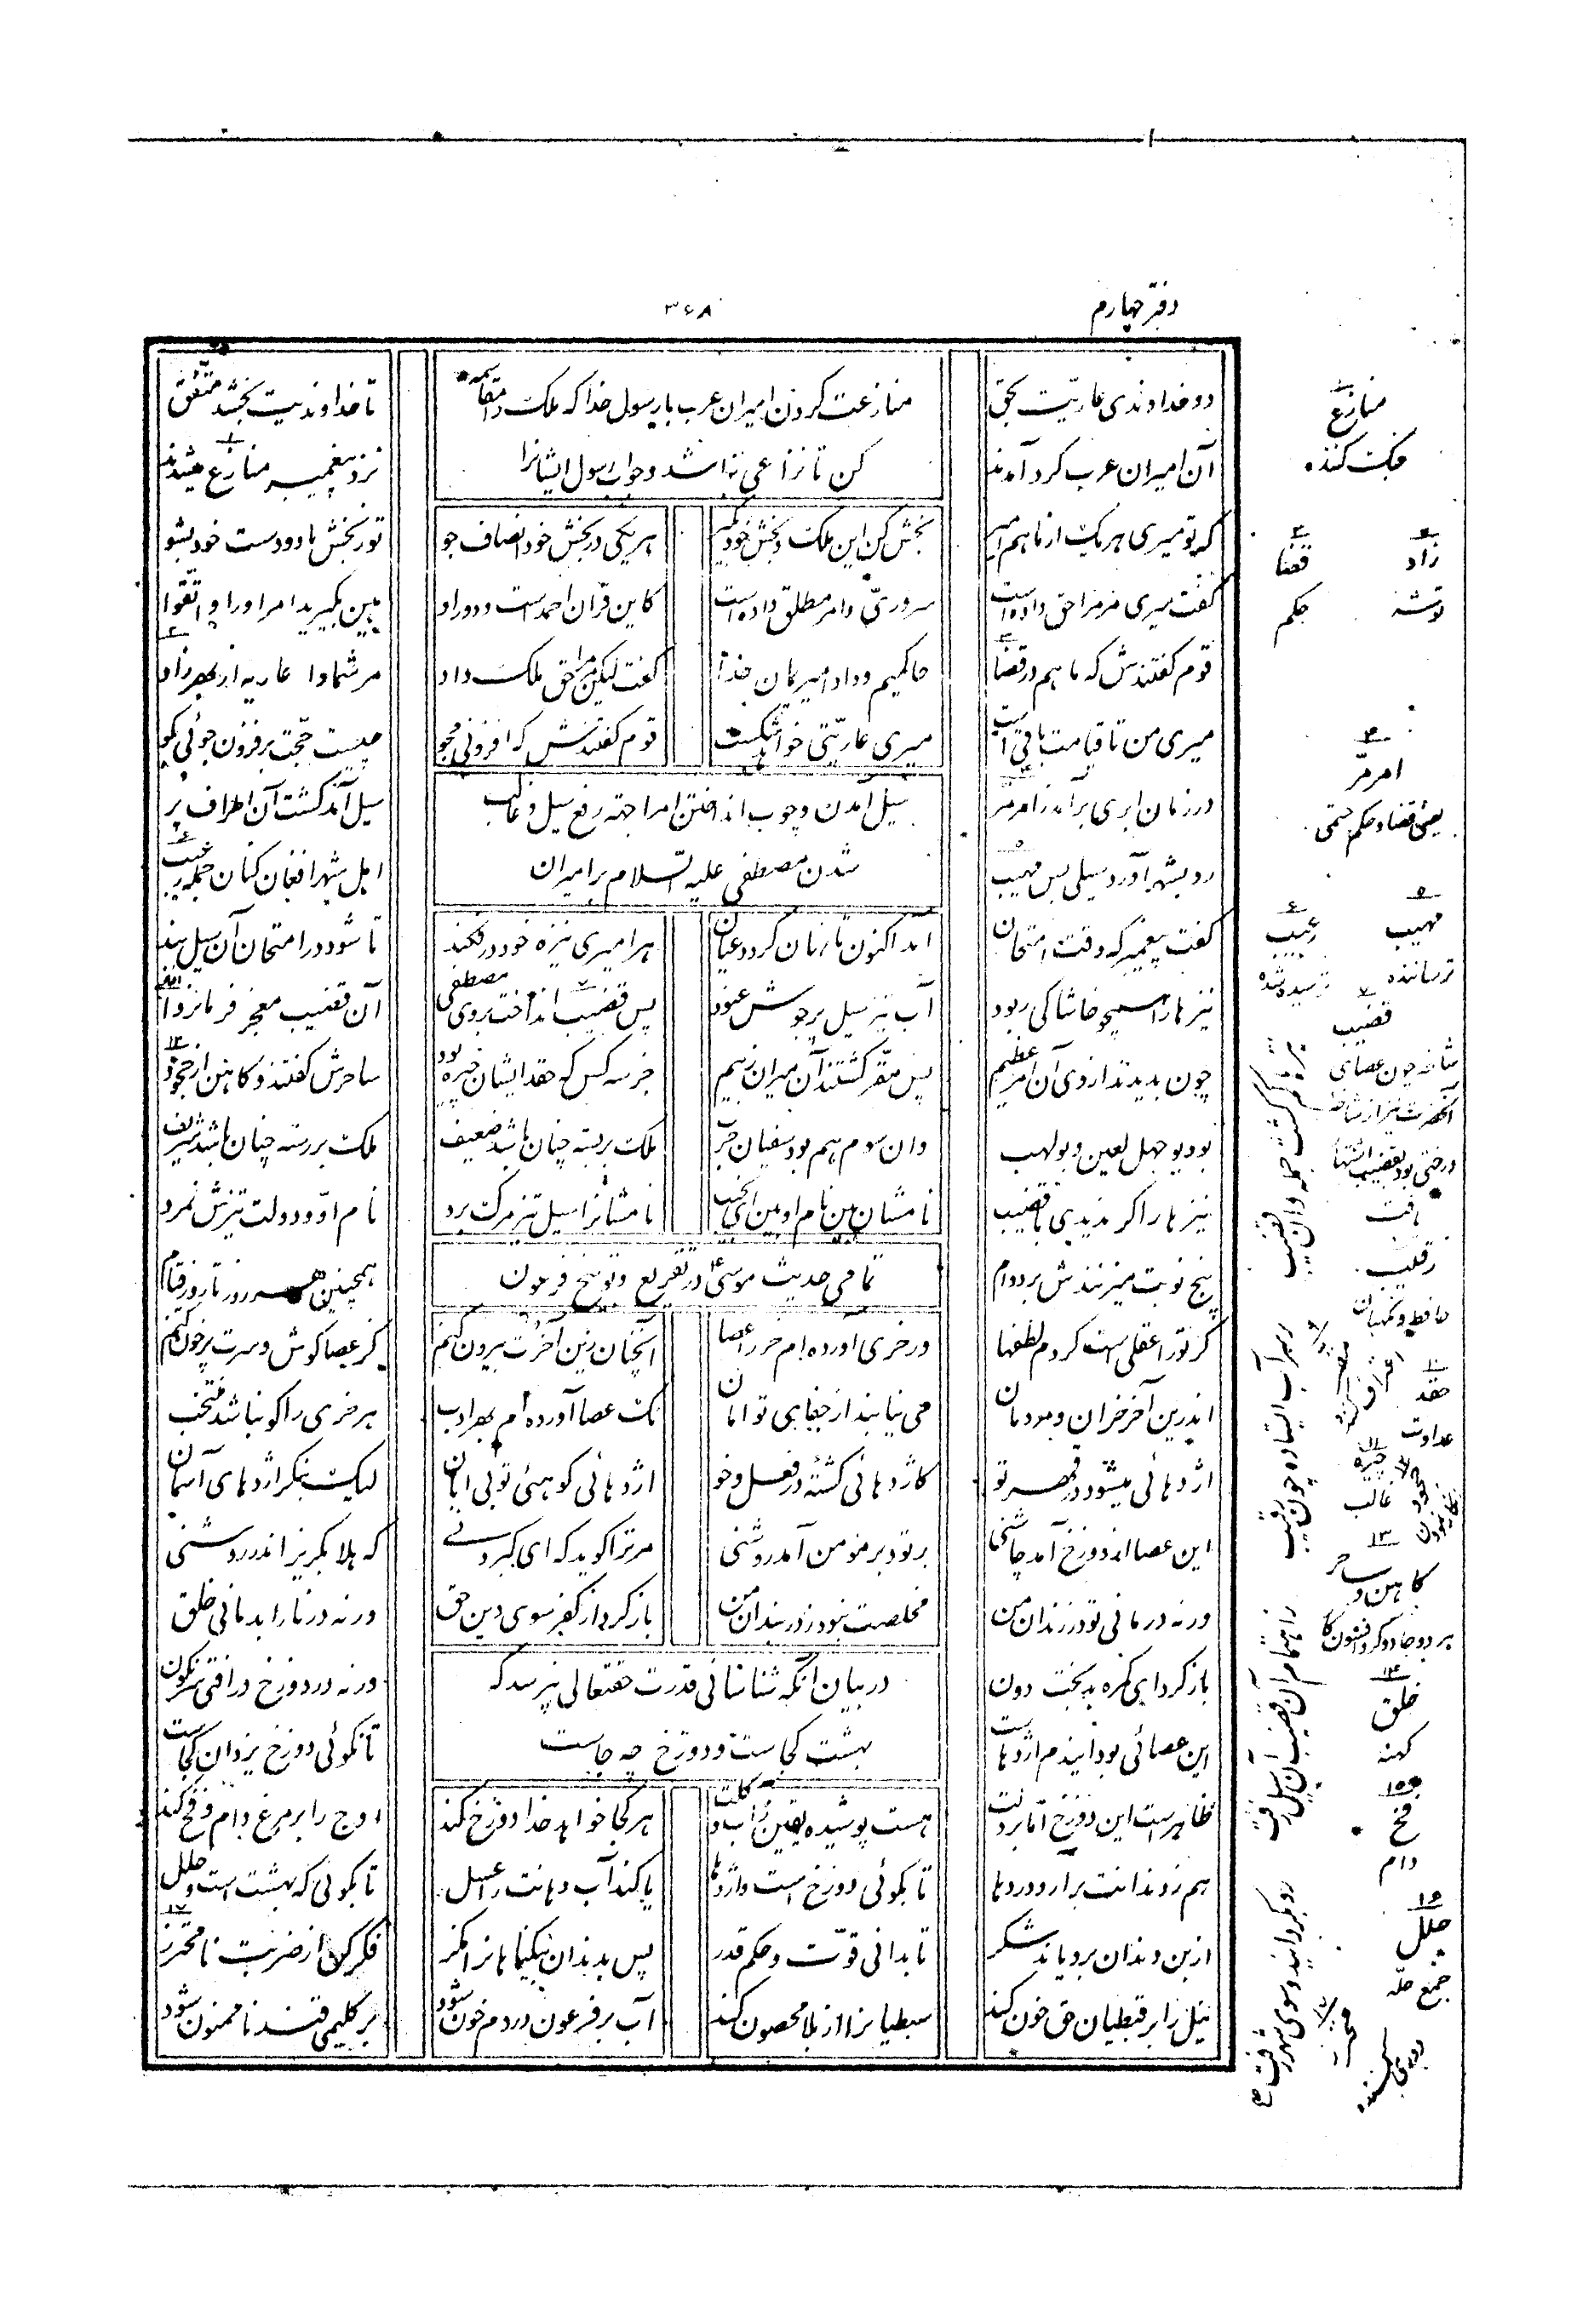 دفتر چهارم
۳۶۸
ده خداوندی عاریت بحق
تا خداوندیت بخشد متفق
منازعت کردن امیران عرب با رسول خدا که ملک را مقاسمه
کن تا نزاعی نباشد و جواب رسول ایشانرا
آن امیران عرب گرد آمدند
نزد پیغمبر منازع میشدند
که تو میری هر یک از ما هم امیر
بخش کن این ملک و بخش خود بگیر
هر یکی در بخش خود انصاف جو
تو ز بخش ما دو دست خود بشو
گفت میری مر مرا حق داده است
سروری و امر مطلق داده است
کاین قران احمد است و دور او
هین بگیرید امر او را و اتقوا
قوم گفتندش که ما هم در قضا
حاکمیم و داد امیریمان خدا
گفت لیکن مر مرا حق ملک داد
مر شما را عاریه از بهر زاد
میری من تا قیامت باقی است
میری عاریتی خواهد شکست
قوم گفتندش که افزونی مجو
چیست حجت بر فزون جوئی بگو
سیل آمدن و چوب انداختن امرا جهة رفع سیل و غالب
شدن مصطفی علیه السلام بر امیران
در زمان ابری برآمد ز امر مر
سیل آمد گشت آن اطراف پر
رو بشهر آورد سیلی بس مهیب
اهل شهر افغان کنان جمله رعیب
گفت پیغمبر که وقت امتحان
آمد اکنون تا نهان گردد عیان
هر امیری نیزه خود در فکند
تا شود در امتحان آن سیل بند
نیزها را همچو خاشاکی ربود
آب تیز سیل پرجوش عنود
پس قضیب انداخت بروی مصطفی
آن قضیب معجز فرمانروا
چون بدیدند از وی آن امر عظیم
پس مقر گشتند آن میران ز بیم
جز سه کس که حقد ایشان چیره بود
ساحرش گفتند و کاهن از جحود
بود بوجهل لعین و بولهب
وان سوم هم بود سفیان حرب
ملک بر بسته چنان باشد ضعیف
ملک بر رسته چنان باشد شریف
نیزها را گر ندیدی با قضیب
نامشان بین نام او بین ای نجیب
نامشانرا سیل تیز مرگ برد
نام او و دولت تیزش نمرد
پنج نوبت میزنندش بر دوام
همچنین هر روز تا روز قیام
تمامی حدیث موسی ع در تقریع و توبیخ فرعون
گر ترا عقلی است کردم لطفها
ور خری آورده ام خر را عصا
آنچنان زین آخرت بیرون کنم
کز عصا گوش و سرت پر خون کنم
اندرین آخر خران و مردمان
می نیابند از جفای تو امان
نک عصا آورده ام بهر ادب
هر خری را کو نباشد منتخب
اژدهائی میشود در قهر تو
کاژدهائی گشتهٔ در فعل و خو
اژدهائی کوهئی تو بی امان
لیک بنگر اژدهای آسمان
این عصا از دوزخ آمد چاشنی
بر تو و بر مومن آمد روشنی
مر ترا گوید که ای گبر دنی
که هلا بگریز اندر روشنی
ورنه درمانی تو در زندان من
مخلصت نبود ز در بندان من
باز گرد از کفر سوی دین حق
ورنه در نار ابد مانی خلق
باز گرد ای گمره بدبخت دون
ورنه در دوزخ در افتی سرنگون
در بیان آنکه شناسائی قدرت حقتعالی نپرسد که
بهشت کجاست و دوزخ چه جاست
این عصائی بود ایندم اژدهاست
تا نگوئی دوزخ یزدان کجاست
ظاهر است این دوزخ اما بر دلت
هست پوشیده یقین ز آب و گلت
هر کجا خواهد خدا دوزخ کند
اوج را بر مرغ دام و فخ کند
هم ز دندانت برآرد دردها
تا بگوئی دوزخ است و اژدها
یا کند آب دهانت را عسل
تا بگوئی که بهشت است و حلل
از بن دندان برویاند شکر
تا بدانی قوت و حکم قدر
پس بدندان بیگناهانرا مگز
فکر کن از ضربت نا محترز
نیل را بر قبطیان حق خون کند
سبطیانرا از بلا محصون کند
آب بر فرعون در دم خون شود
بر کلیمی قند نا ممنون شود
۱
منازع
جنگ کننده
۲
زاد
توشه
۳
قضا
حکم
۴
امر مر
یعنی قضا و حکم حتمی
۵
مهیب
ترساننده
۶
رعیب
ترسیده شده
۷
قضیب
شاخه چون عصای
آنحضرت نیز از شاخه
درختی بود بقضیب اشتهار
یافت
رقیب
حافظ و نگهبان
۹
مقر
اعتراف کننده
۱۰
حقد
عداوت
۱۱
چیره
غالب
۱۲
جحود
انکار نمودن
۱۳
کاهن و ساحر
هر دو جادوگر و افسون کار
۱۴
خلق
کهنه
۱۵
فخ
دام
۱۶
حلل
جمع حله
۱۷
محترز
دوری کننده
نیزها گم گشت جمله وان قضیب
بر سر آب ایستاده چون رقیب
ز اهتمام آن قضیب آن سیل رفت
رو بگردانید و سوی شهر رفت